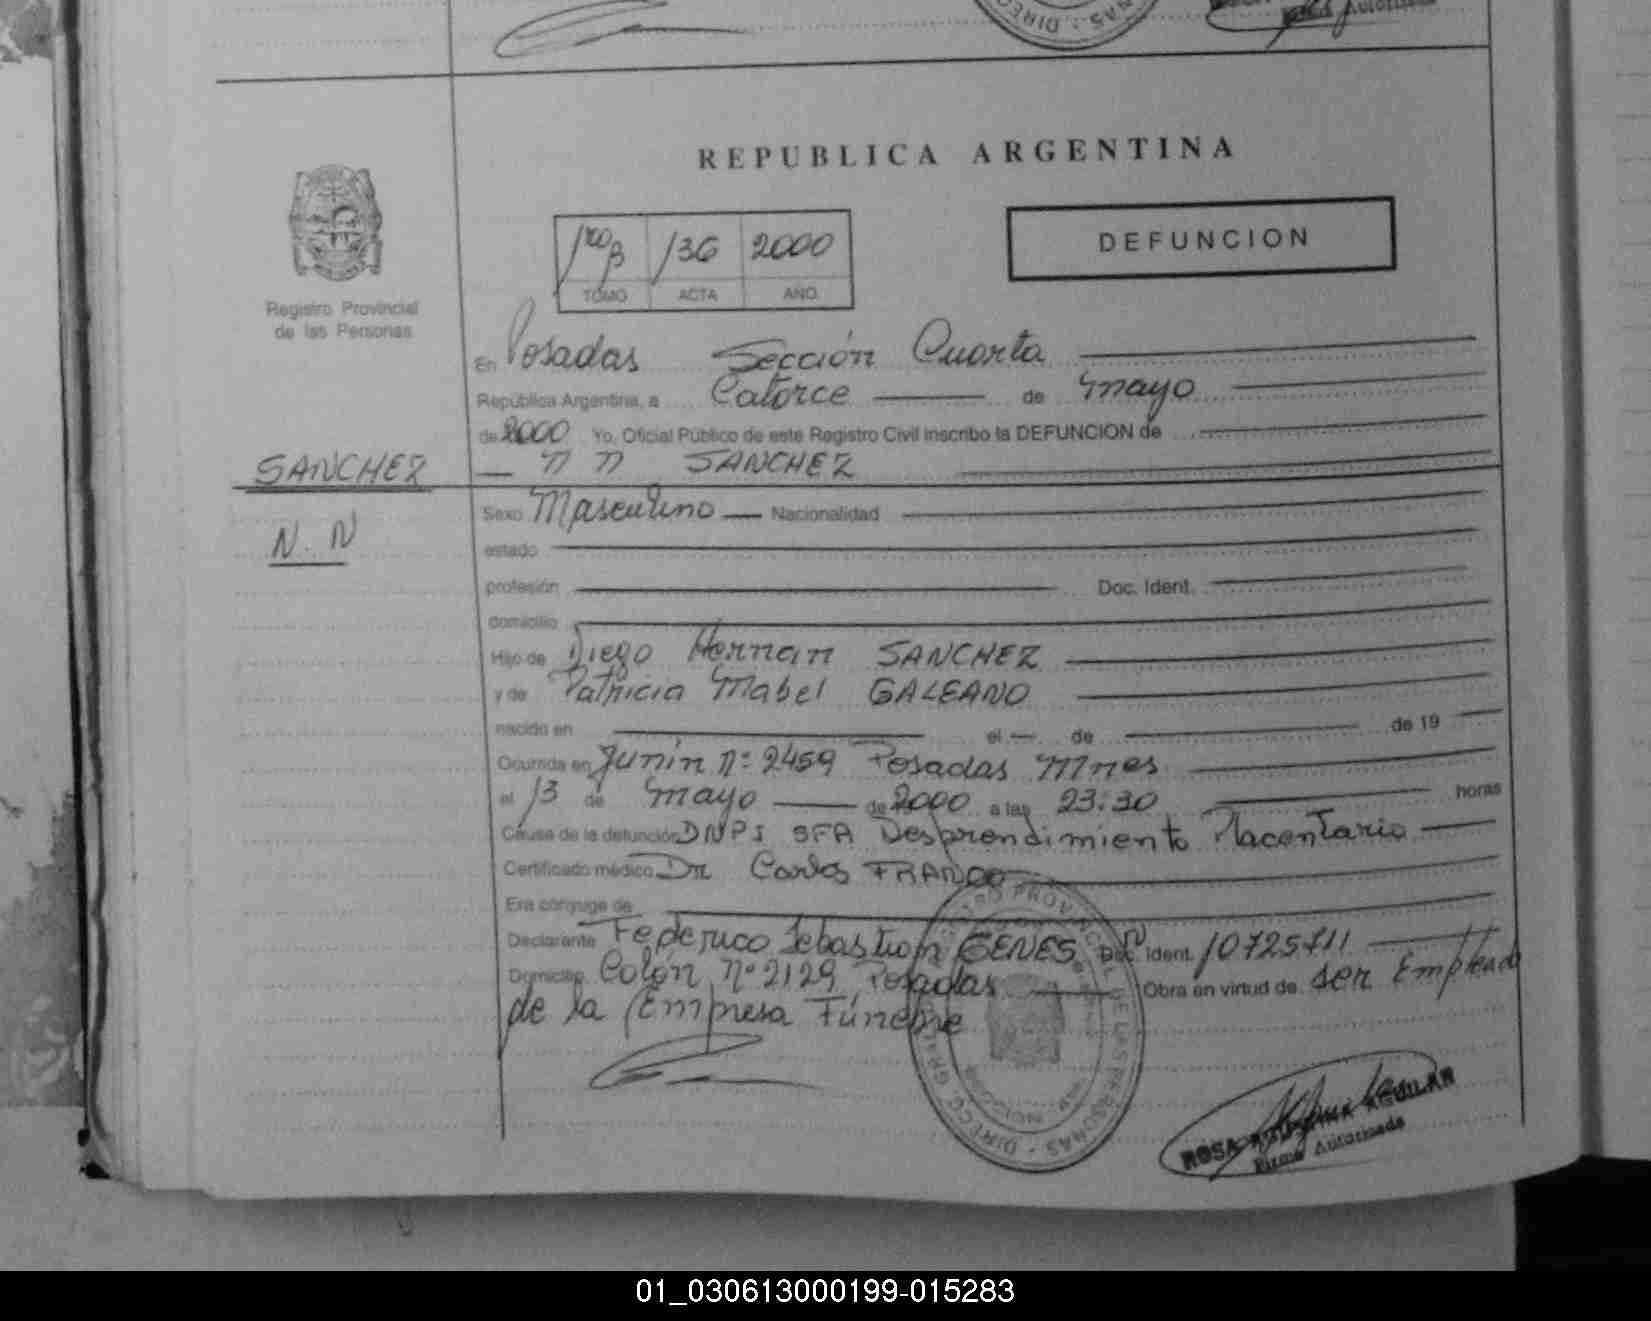 REPUBLICA ARGENTINA
1ro B 136 2000
TOMO ACTA AÑO
DEFUNCION
Registro Provincial
de las Personas
En Posadas Sección Cuarta
República Argentina, a Catorce de Mayo
de 2000 Yo, Oficial Público de este Registro Civil inscribo la DEFUNCION de
SANCHEZ
N N SANCHEZ
N. N
Sexo Masculino Nacionalidad
estado
profesión Doc. Ident.
domicilio
Hijo de Diego Hernan SANCHEZ
y de Patricia Mabel GALEANO
nacido en el de de 19
Ocurrida en Junin Nº 2459 Posadas Mnes
el 13 de Mayo de 2000 a las 23:30 horas
Causa de la defunción DNPI SFA Desprendimiento Placentario
Certificado médico Dr. Carlos FRANCO
Era cónyuge de
Declarante Federico Sebastian GENES Doc. Ident. 10725711
Domicilio Colón Nº 2129 Posadas Obra en virtud de ser Empleado
de la Empresa Fúnebre
ROSA AGUSTINA AGUILAR
Firma Autorizada
01_030613000199-015283